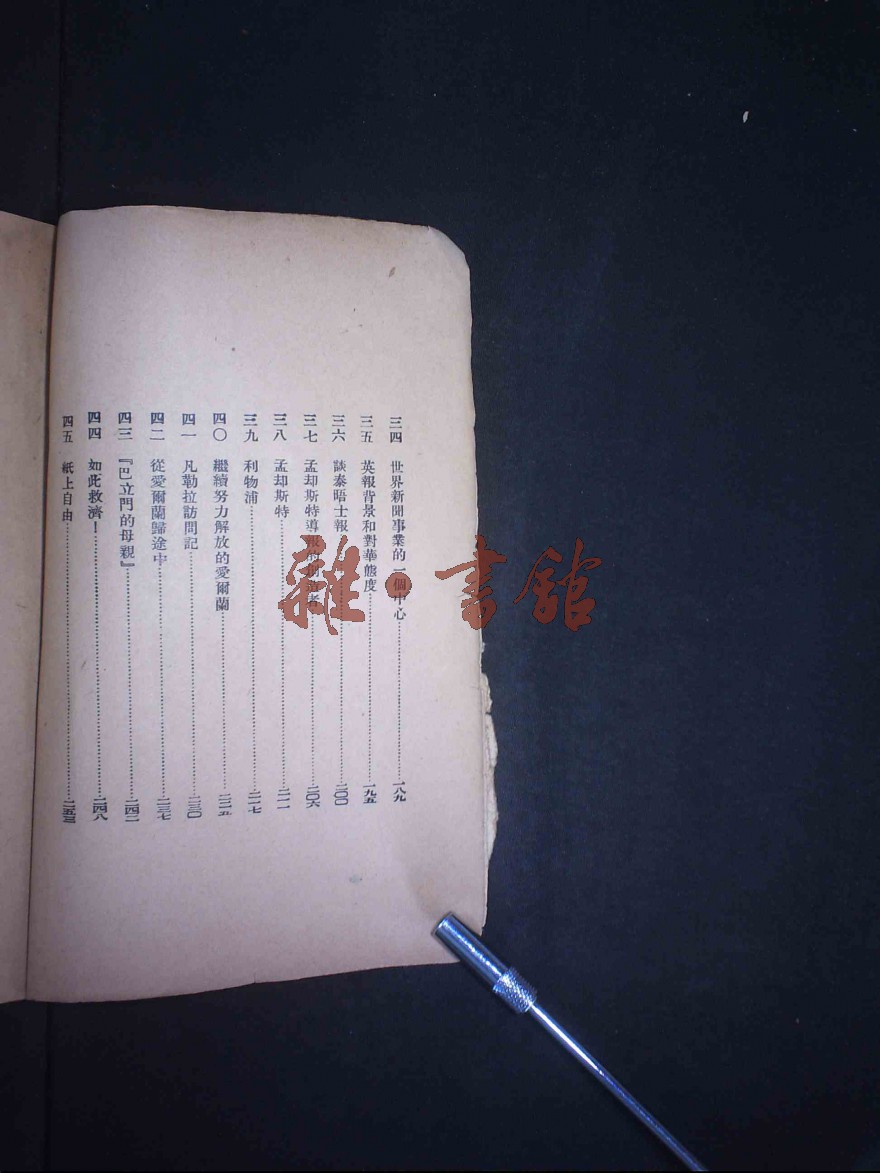 三四 世界新聞事業的一個中心……一八九
三五 英報背景和對華態度……一九五
三六 談泰晤士報……二〇〇
三七 孟却斯特導報的創造者……二〇六
三八 孟却斯特……二一一
三九 利物浦……二一七
四〇 繼續努力解放的愛爾蘭……二二五
四一 凡勒拉訪問記……二三〇
四二 從愛爾蘭歸途中……二三七
四三 『巴立門的母親』……二四二
四四 如此救濟！……二四八
四五 紙上自由……二五三
雜·書館